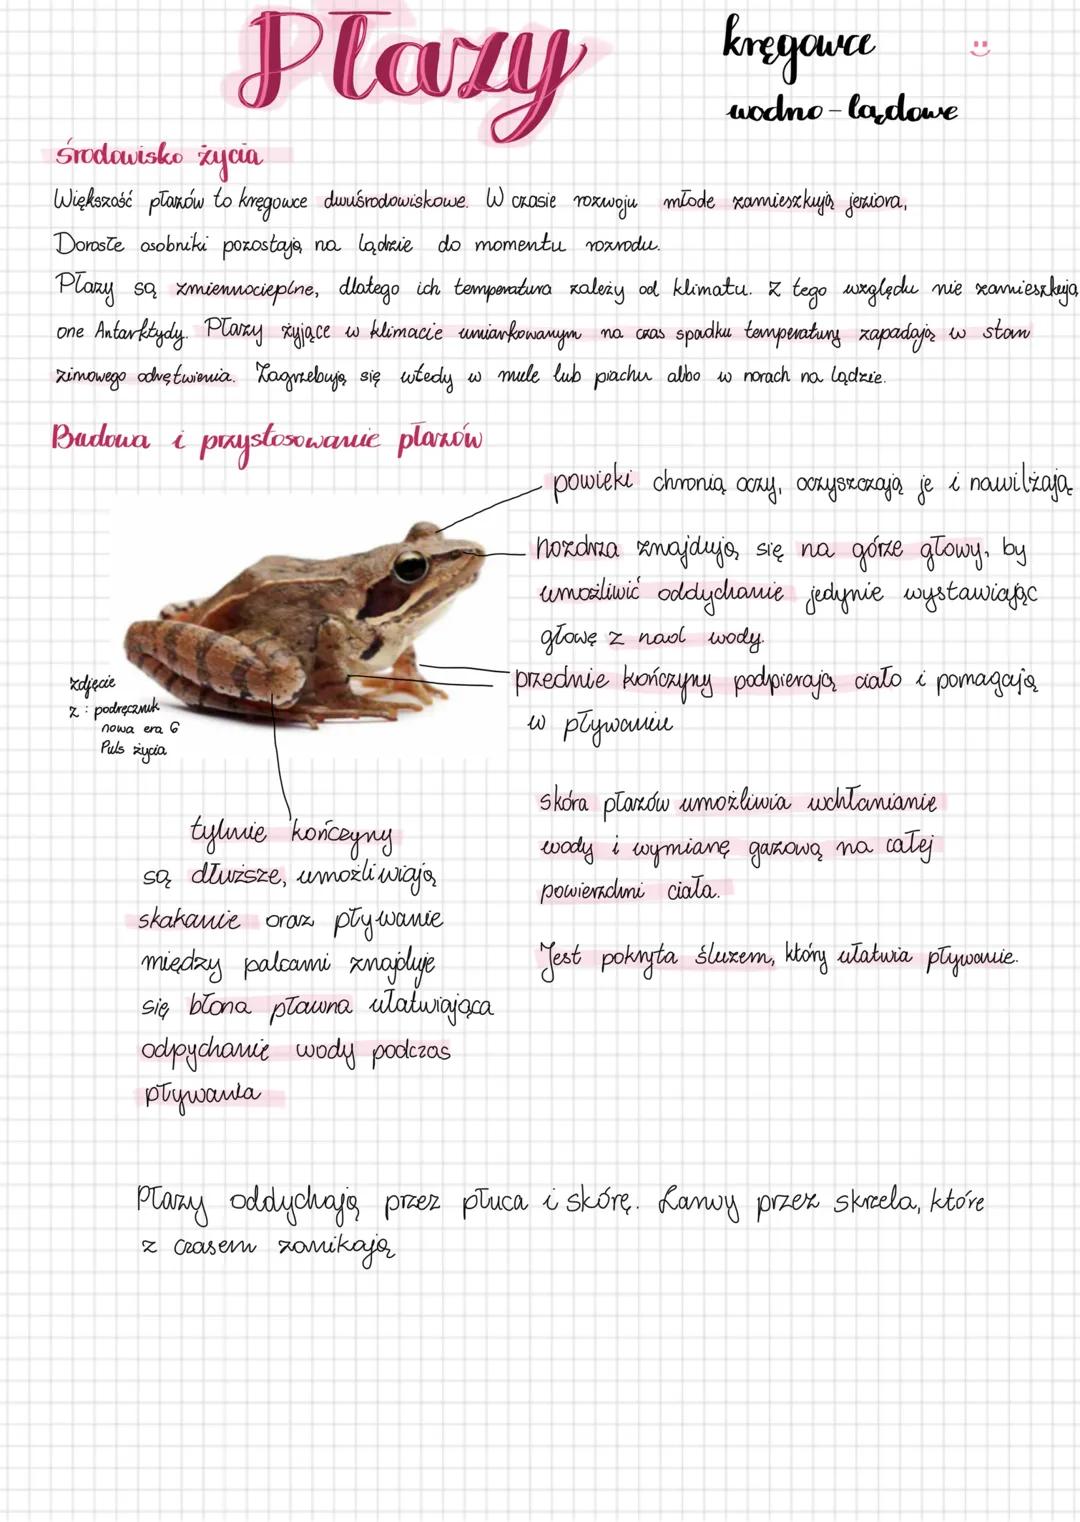 Płazy
kręgowce
wodno-lądowe
środowisko życia
Większość płazów to kręgowce dwuśrodowiskowe. W czasie rozwoju młode zamieszkują jeziora,
Dorosłe osobniki pozostają na lądzie do momentu rozrodu.
Płazy są zmiennocieplne, dlatego ich temperatura zależy od klimatu. Z tego względu nie zamieszkują
one Antarktydy. Płazy żyjące w klimacie umiarkowanym na czas spadku temperatury zapadają w stan
zimowego odrętwienia. Zagrzebują się wtedy w mule lub piachu albo w norach na lądzie.
Budowa i przystosowanie płazów
powieki chronią oczy, oczyszczają je i nawilżają
nozdrza znajdują się na górze głowy, by
umożliwić oddychanie jedynie wystawiając
głowę z nad wody.
przednie kończyny podpierają ciało i pomagają
w pływaniu
zdjęcie
z: podręcznik
nowa era 6
Puls życia
skóra płazów umożliwia wchłanianie
wody i wymianę gazową na całej
powierzchni ciała.
Jest pokryta śluzem, który ułatwia pływanie.
tylnie kończyny
są dłuższe, umożliwiają
skakanie oraz pływanie
między palcami znajduje
się błona pławna ułatwiająca
odpychanie wody podczas
pływania
Płazy oddychają przez płuca i skórę. Larwy przez skrzela, które
z czasem zanikają